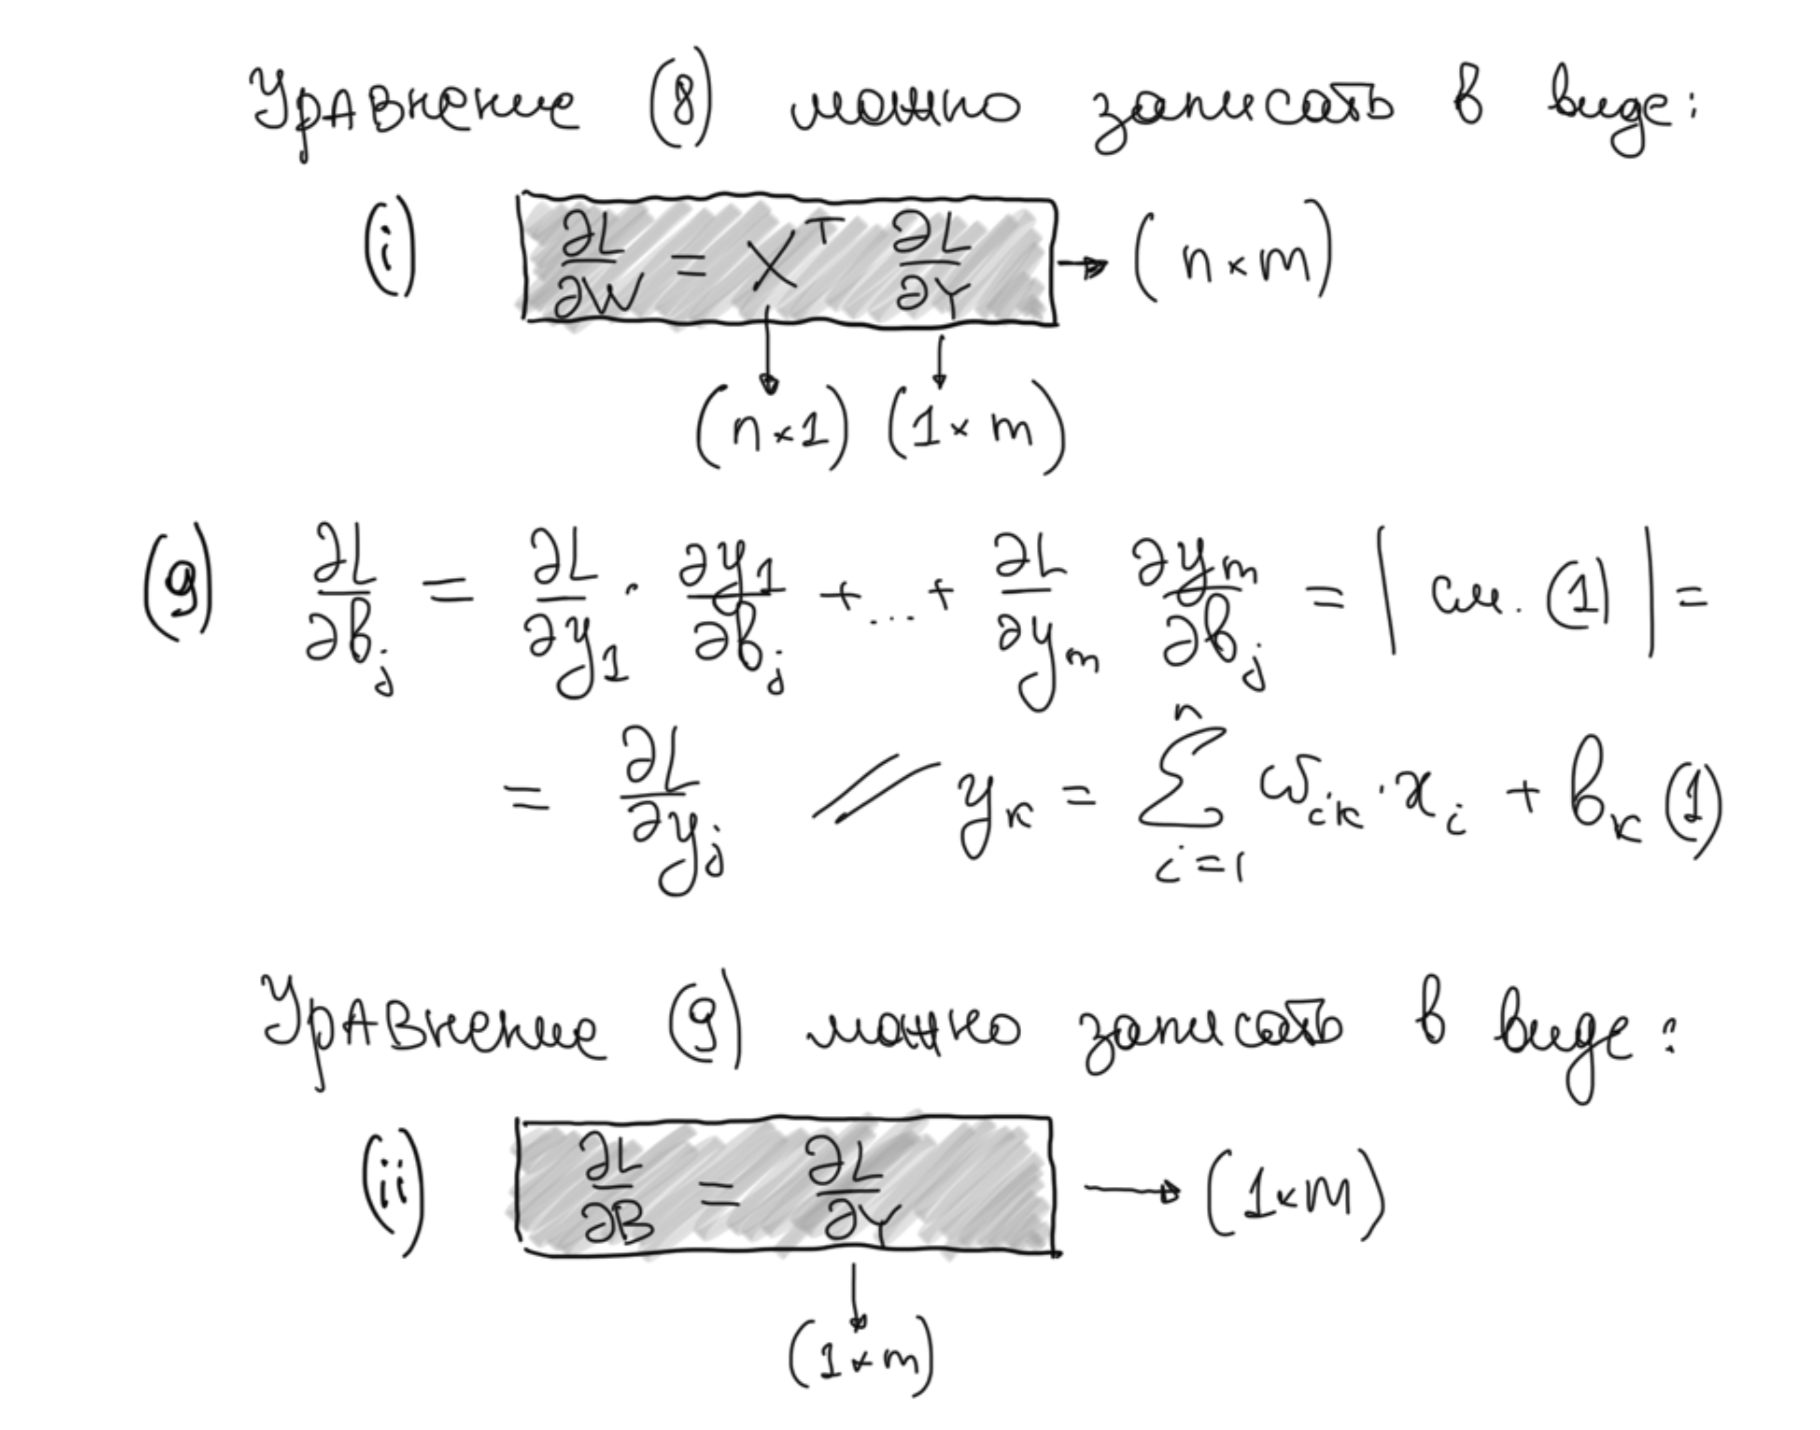 Уравнение (8) можно записать в виде:
(i) ∂L/∂W = X^T ∂L/∂Y → (n×m)
(n×1) (1×m)
(9) ∂L/∂b_j = ∂L/∂y_1 · ∂y_1/∂b_j + ... + ∂L/∂y_m ∂y_m/∂b_j = | см. (1) | =
= ∂L/∂y_j // y_k = ∑_{i=1}^{n} ω_{ik} · x_i + b_k (1)
Уравнение (9) можно записать в виде:
(ii) ∂L/∂B = ∂L/∂Y → (1×m)
(1×m)